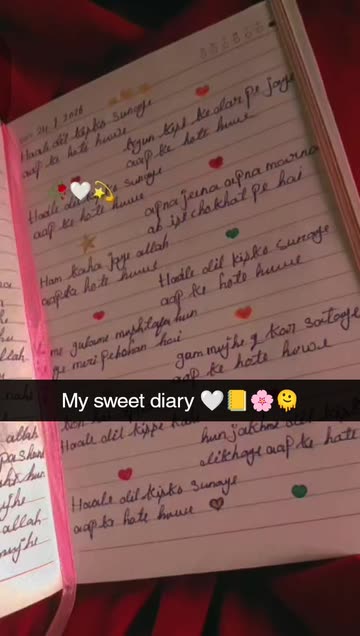 24.1.2026
Haale dil kisko sunaye
aap ke hote huwe
kyun kisi ke dar pe jaye
aap ke hote huwe
Haale dil kisko sunaye
aap ke hote huwe
apna jeena apna marna
ab isi chokhat pe hai
Ham kaha jaye allah
aapke hote huwe
Haale dil kisko sunaye
aap ke hote huwe
me gulame mustafa hun
ye meri pehchan hai
gam mujhe q kar sataye
aap ke hote huwe
My sweet diary 🤍📒🌸🫠
Haale dil kispe
hun jakhme dil kis
dikhaye aap ke hote
Haale dil kisko sunaye
aap ke hote huwe
allah
mujhe
allah
mujhe